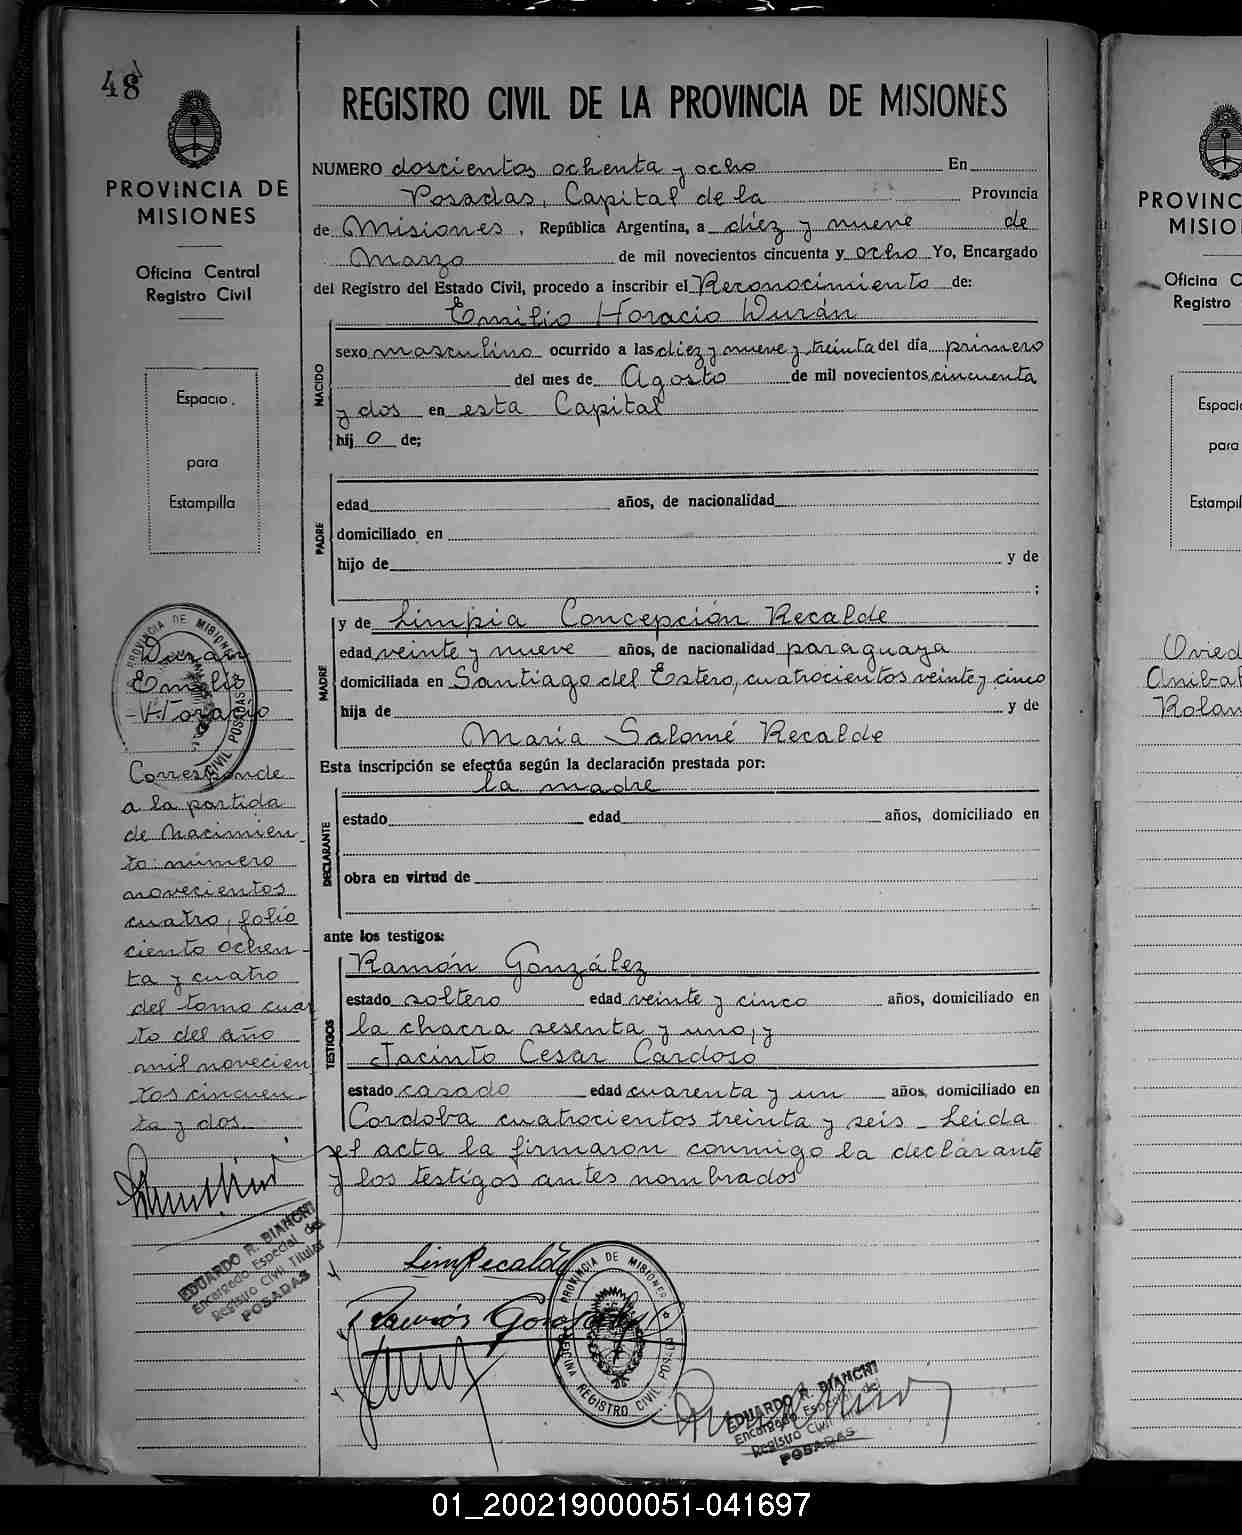 48
PROVINCIA DE
MISIONES
Oficina Central
Registro Civil
Espacio
para
Estampilla
Duran
Emilio
Horacio
Corresponde
a la partida
de Nacimien
to: número
novecientos
cuatro, folio
ciento ochen-
ta y cuatro
del tomo cuar
to del año
mil novecien
tos cincuen-
ta y dos.
EDUARDO R. BIANCHI
Encargado Especial del
Registro Civil Titular
POSADAS
REGISTRO CIVIL DE LA PROVINCIA DE MISIONES
NUMERO doscientos ochenta y ocho En
Posadas, Capital de la Provincia
de Misiones, República Argentina, a diez y nueve de
Marzo de mil novecientos cincuenta y ocho Yo, Encargado
del Registro del Estado Civil, procedo a inscribir el Reconocimiento de:
Emilio Horacio Durán
NACIDO
sexo masculino ocurrido a las diez y nueve y treinta del día primero
del mes de Agosto de mil novecientos cincuenta
y dos en esta Capital
hij o de;
PADRE
edad años, de nacionalidad
domiciliado en
hijo de y de
;
MADRE
y de Limpia Concepción Recalde
edad veinte y nueve años, de nacionalidad paraguaya
domiciliada en Santiago del Estero, cuatrocientos veinte y cinco
hija de y de
María Salomé Recalde
Esta inscripción se efectúa según la declaración prestada por:
la madre
DECLARANTE
estado edad años, domiciliado en
obra en virtud de
ante los testigos:
Ramón González
TESTIGOS
estado soltero edad veinte y cinco años, domiciliado en
la chacra sesenta y uno, y
Jacinto Cesar Cardoso
estado casado edad cuarenta y un años, domiciliado en
Cordoba cuatrocientos treinta y seis - Leida
el acta la firmaron conmigo la declarante
y los testigos antes nombrados
LimRecalde
Ramón González
PROVINCIA DE MISIONES
OFICINA REGISTRO CIVIL POSADAS
EDUARDO R. BIANCHI
Encargado Especial del
Registro Civil
POSADAS
PROVINC
MISIO
Oficina C
Registro
Espacio
para
Estampil
Ovied
Anibal
Rolan
01_200219000051-041697